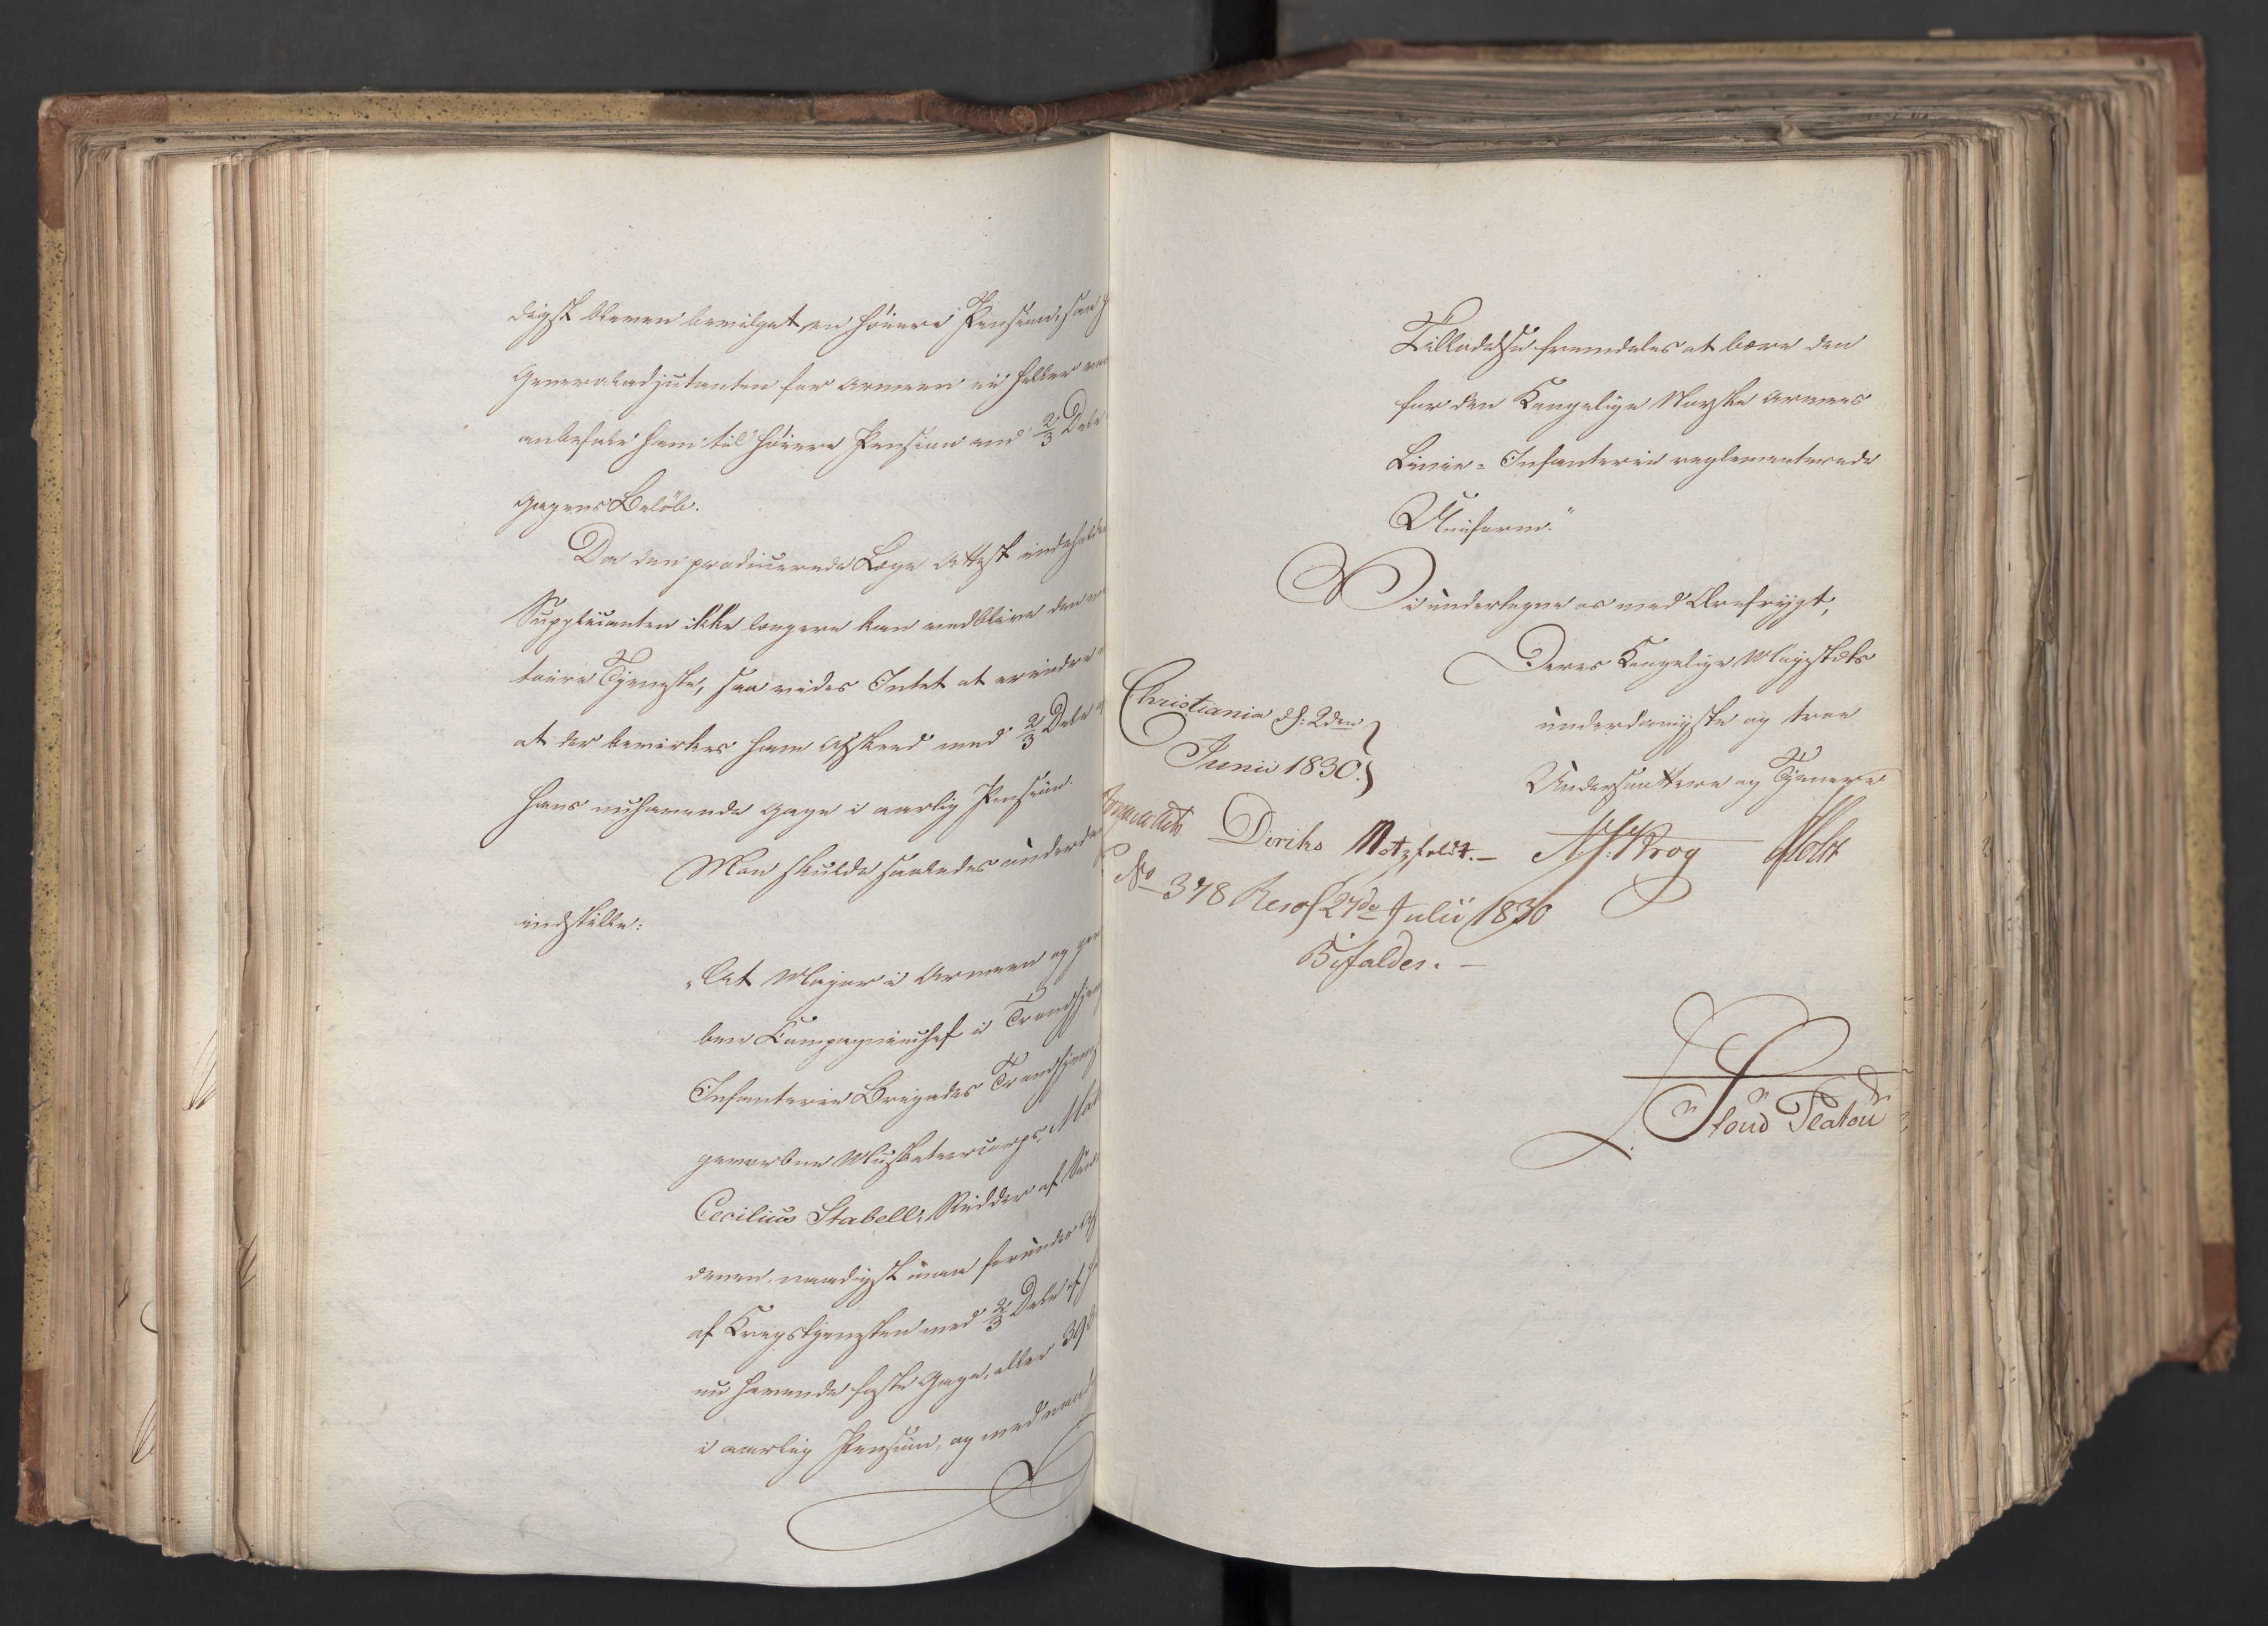 digst bleven bevilget en høiere Pension, saa
Generaladjutanten for Armeen ei heller
anbefale ham til høiere Pension end 2/3 Dele
Gagens Beløb.
Da den producerede Læge Attest indeholder
Supplicanten ikke længere kan vedblive den
taire Tjeneste, saa vides Intet at erindre
at der bevirkes ham Afskeed med 2/3 Dele
hans nuhavende Gage i aarlig Pension.
Man skulde saaledes underd
indstille:
„At Major i Armeen og
ben Compagniechef i Trondhjem
Infanterie Brigades Trondhjem
gevorbne Musketeercorps,
Cecilius Stabell, Ridder af
denen naadigst maa forundes
af Krigstjenesten med 2/3 Dele af
nu havende faste Gage, eller
i aarlig Pension, og med
Tilladelse fremdeles at bære den
for den Kongelige Norske Armees
Linie-Infanterie reglementerede
Uniform."
Vi undertegne os med Ærefrygt,
Deres Kongelige Majestæts
underdanigste og troe
Undersaattere og Tjenere
Christiania d: 2den
Junii 1830.
Diriks Motzfeldt.- Krog Holst
No 378 Resol 27de Julii 1830
Bifaldes. -
Platou